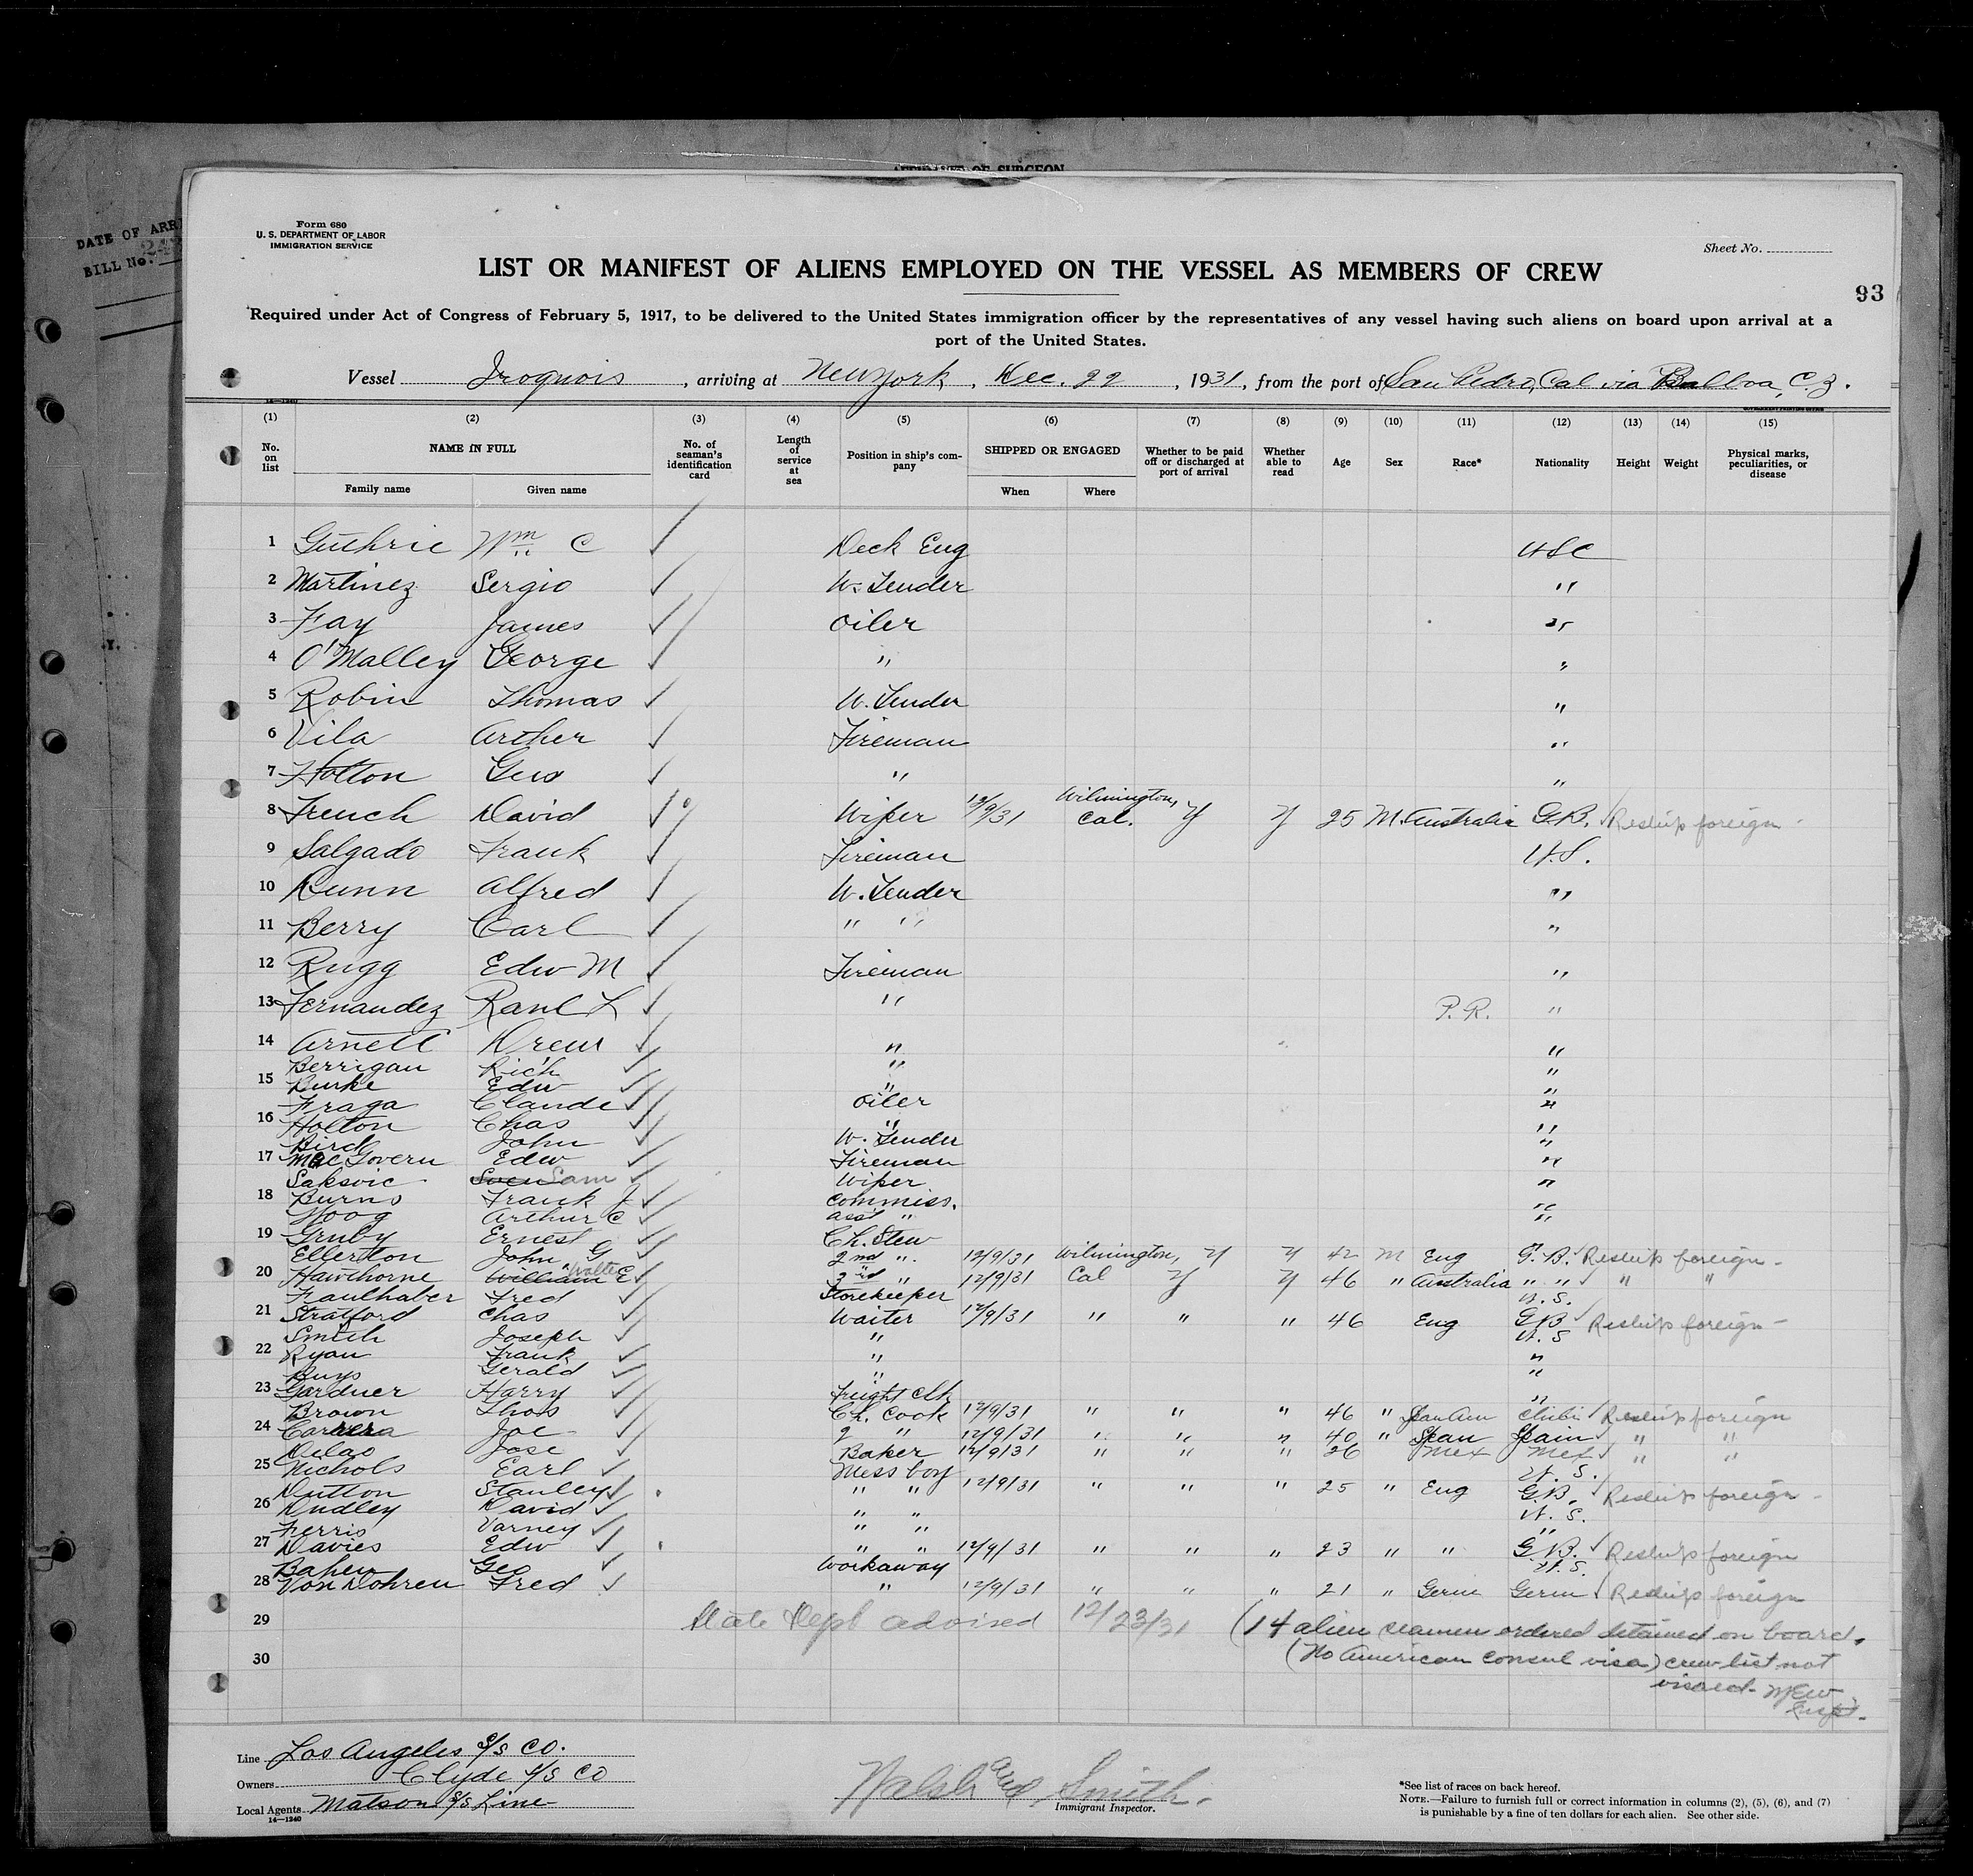 AFFIDAVIT OF SURGEON
DATE OF ARRI
BILL No.
Form 680
U. S. DEPARTMENT OF LABOR
IMMIGRATION SERVICE
Sheet No.
LIST OR MANIFEST OF ALIENS EMPLOYED ON THE VESSEL AS MEMBERS OF CREW
93
Required under Act of Congress of February 5, 1917, to be delivered to the United States immigration officer by the representatives of any vessel having such aliens on board upon arrival at a
port of the United States.
Vessel Iroquois, arriving at New York, Dec. 22, 1931, from the port of San Pedro, Cal via Balboa, C.Z.
14—1240 GOVERNMENT PRINTING OFFICE
(1) (2) (3) (4) (5) (6) (7) (8) (9) (10) (11) (12) (13) (14) (15)
No. on list NAME IN FULL No. of seaman's identification card Length of service at sea Position in ship's company SHIPPED OR ENGAGED Whether to be paid off or discharged at port of arrival Whether able to read Age Sex Race* Nationality Height Weight Physical marks, peculiarities, or disease
Family name Given name When Where
1 Guthrie Wm C ✓ Deck Eng USC
2 Martinez Sergio ✓ W. Tender "
3 Fay James ✓ Oiler "
4 O'Malley George ✓ " "
5 Robin Thomas ✓ W. Tender "
6 Vila Arther ✓ Fireman "
7 Holton Geo ✓ " "
8 French David ✓ Wiper 12/9/31 Wilmington, Cal. Y Y 25 M. Australia G.B. ✓ Reship foreign -
9 Salgado Frank ✓ Fireman U.S.
10 Dunn Alfred ✓ W. Tender "
11 Berry Carl ✓ " " "
12 Rugg Edw M ✓ Fireman "
13 Fernandez Raul L ✓ " P.R. "
14 Arnett Drew ✓ " "
Berrigan Rich ✓ " "
15 Burke Edw ✓ " "
Fraga Claude ✓ Oiler "
16 Holton Chas ✓ " "
Bird John ✓ W. Tender "
17 MacGovern Edw ✓ Fireman "
Saksvic Sven Sam ✓ Wiper "
18 Burns Frank J ✓ Commiss. "
Hoog Arthur C ✓ asst " "
19 Gruby Ernest ✓ Ch. Stew
Ellerton John G ✓ 2nd " 12/9/31 Wilmington, Y Y 42 M Eng G.B. ✓ Reship foreign -
20 Hawthorne William Walter E ✓ 3rd " 12/9/31 Cal Y Y 46 " Australia " " ✓ " "
Faulhaber Fred ✓ Storekeeper U.S.
21 Stratford Chas ✓ Waiter 12/9/31 " " " 46 Eng G.B ✓ Reship foreign -
Smith Joseph ✓ " U.S
22 Ryan Frank ✓ " "
Buys Gerald ✓ " "
23 Gardner Harry ✓ Freight Clk "
Brown Thos ✓ Ch. Cook 12/9/31 " " " 46 " Span Am Chili ✓ Reship foreign
24 Joe 2 " 12/9/31 " " " 40 " Span Spain ✓ " "
Jose Baker 12/9/31 " " " 26 Mex Mex ✓ " "
25 Nichols Earl ✓ Mess boy U.S.
Dutton Stanley ✓ " " 12/9/31 " " " 25 " Eng G.B. Reship foreign -
26 Dudley David ✓ " " U.S.
Ferris Varney ✓ " " "
27 Davies Edw ✓ " " 12/9/31 " " " 23 " " G.B. ✓ Reship foreign
Bahen Geo ✓ Workaway U.S.
28 Von Dohren Fred ✓ " 12/9/31 " " " 21 " Germ Germ ✓ Reship foreign
29 State Dept advised 12/23/31 (14 alien seamen ordered detained on board.
30 (No American consul visa) crew list not
visaed - MEW
Insp.
Line Los Angeles S/S Co.
Owners Clyde S/S Co
Local Agents Matson S/S Line
14—1240
Walsh and Smith.
Immigrant Inspector.
*See list of races on back hereof.
NOTE.—Failure to furnish full or correct information in columns (2), (5), (6), and (7)
is punishable by a fine of ten dollars for each alien. See other side.